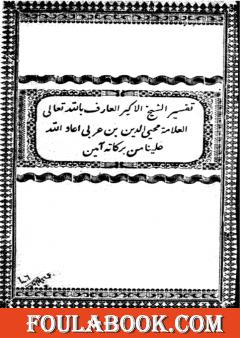 تفسير الشيخ الاكبر العارف بالله تعالى
العلامة محيي الدين بن عربي اعاد الله
علينا من بركاته آمين
FOULABOOK.COM